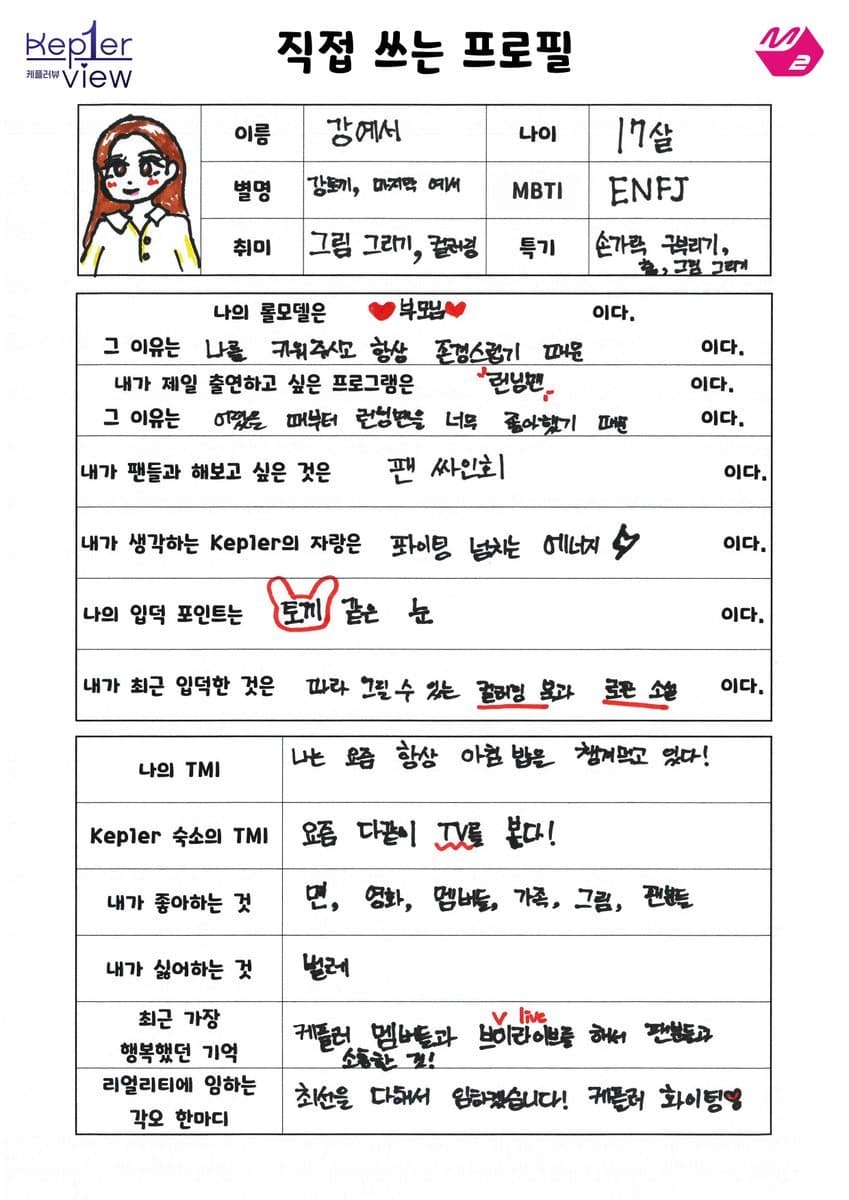 Kep1er
케플러뷰 view
직접 쓰는 프로필
M2
이름 강예서 나이 17살
별명 강토끼, 마지막 예서 MBTI ENFJ
취미 그림 그리기, 컬러링 특기 손가락 구부리기,
춤, 그림 그리기
나의 롤모델은 부모님 이다.
그 이유는 나를 키워주시고 항상 존경스럽기 때문 이다.
내가 제일 출연하고 싶은 프로그램은 런닝맨 이다.
그 이유는 어렸을 때부터 런닝맨을 너무 좋아했기 때문 이다.
내가 팬들과 해보고 싶은 것은 팬 싸인회 이다.
내가 생각하는 Kep1er의 자랑은 파이팅 넘치는 에너지 이다.
나의 입덕 포인트는 토끼 같은 눈 이다.
내가 최근 입덕한 것은 따라 그릴 수 있는 컬러링 북과 로판 소설 이다.
나의 TMI 나는 요즘 항상 아침 밥을 챙겨먹고 있다!
Kep1er 숙소의 TMI 요즘 다같이 TV를 본다!
내가 좋아하는 것 면, 영화, 멤버들, 가족, 그림, 팬분들
내가 싫어하는 것 벌레
최근 가장
행복했던 기억
V live
케플러 멤버들과 브이라이브를 해서 팬분들과
소통한 것!
리얼리티에 임하는
각오 한마디
최선을 다해서 임하겠습니다! 케플러 화이팅